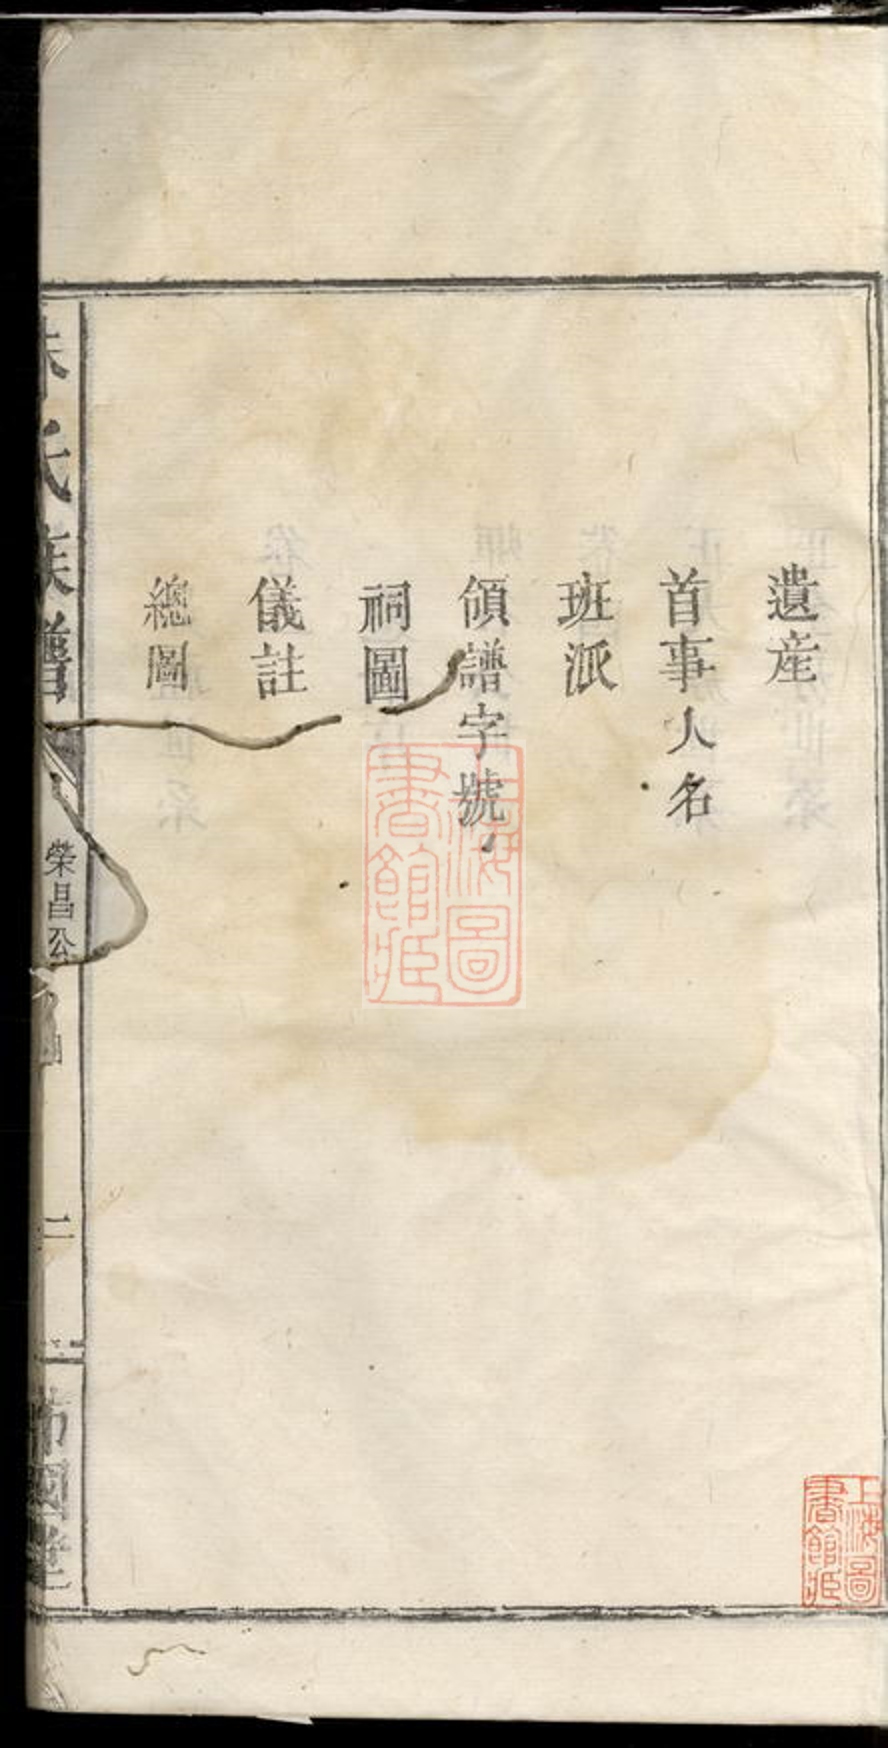 遺産
首事人名
班派
領譜字號
祠圖
儀註
總圖
氏族譜
榮昌公
二
國
上海圖書館藏
上海圖書館藏